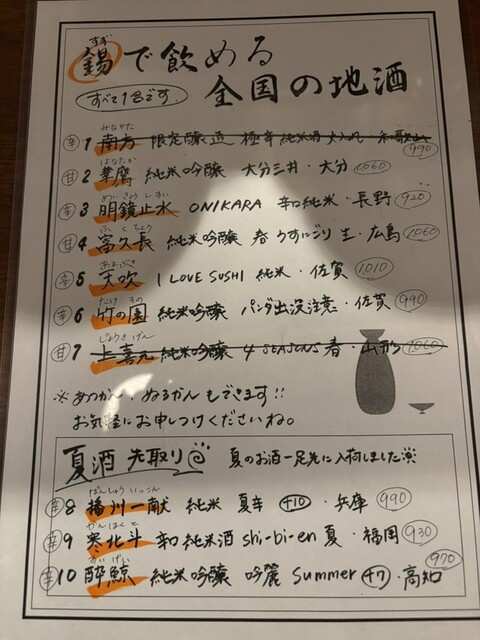 すず
錫で飲める
全国の地酒
すべて1合です.
みなかた
辛 1 南方 限定醸造 極辛 純米酒 火入れ・和歌山 990
はなたか
甘 2 華鷹 純米吟醸 大分三井・大分 1060
めいきょうしすい
辛 3 明鏡止水 ONIKARA 辛口純米・長野 920
ふくちょう
甘 4 富久長 純米吟醸 春 うすにごり 生・広島 1060
あまぶき
辛 5 天吹 I LOVE SUSHI 純米・佐賀 1010
たけ その
辛 6 竹の園 純米吟醸 パンダ出没注意・佐賀 990
じょうきげん
甘 7 上喜元 純米吟醸 4 SEASONS 春・山形 1060
※あつかん・ぬるかんもできます!!
お気軽にお申しつけくださいね。
夏酒 先取り 夏のお酒一足先に入荷しました
ばんしゅういっこん
辛 8 播州一献 純米 夏辛 +10・兵庫 990
かんほくと
辛 9 寒北斗 辛口純米酒 shi-bi-en 夏・福岡 930
すいげい
辛 10 酔鯨 純米吟醸 吟麗 Summer +7・高知 970